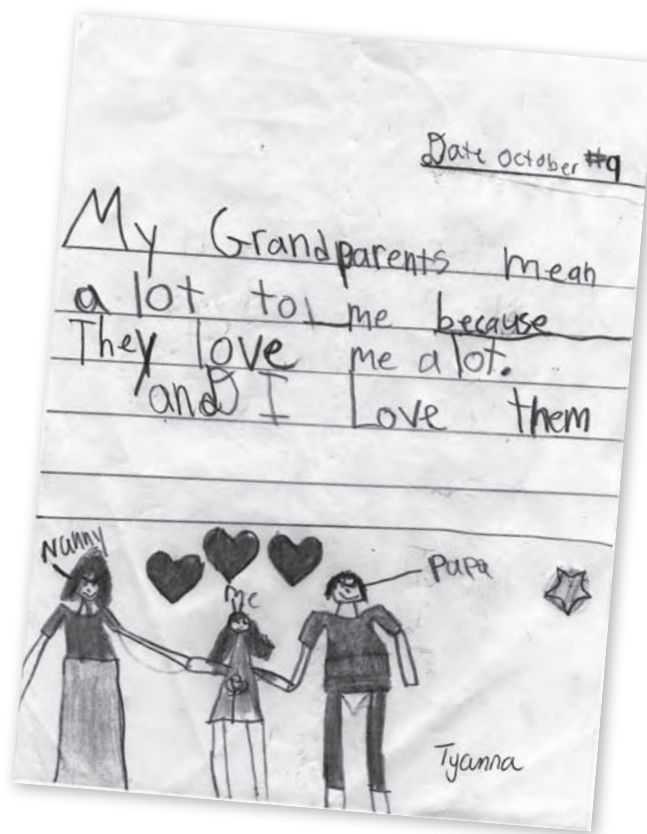 Date October #9
My Grandparents mean
a lot to me because
They love me a lot.
and I Love them
Nanny
me
Papa
Tyanna